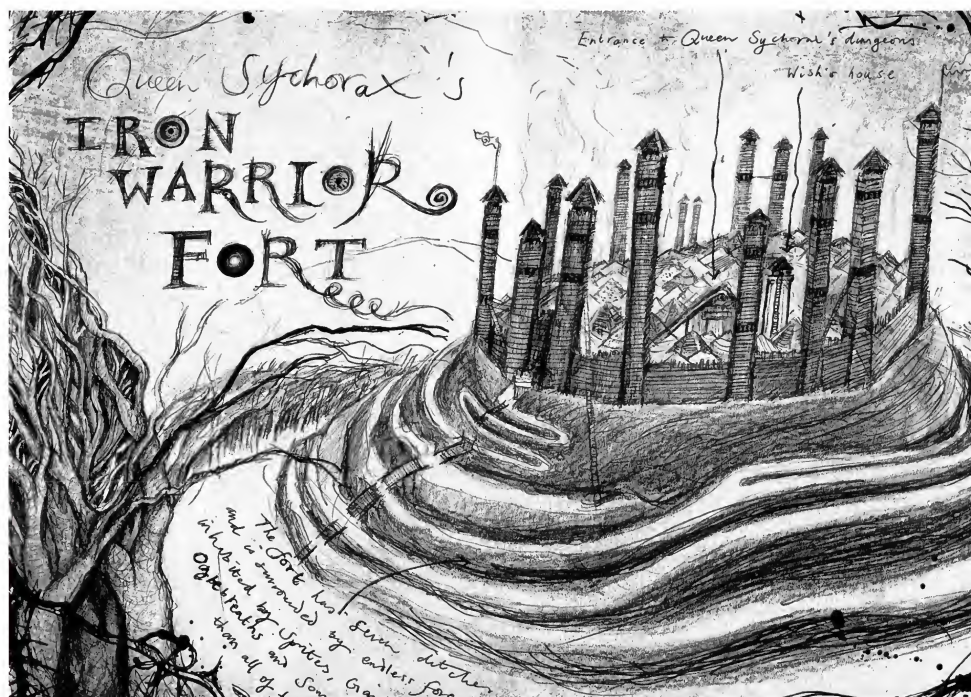 Queen Sychorax's
IRON
WARRIOR
FORT
Entrance to Queen Sychorax's dungeons
Wish's house
The fort has seven ditches
and is surrounded by endless fore
inhabited by Sprites, Gia
Ogrebreaths and Som
than all of